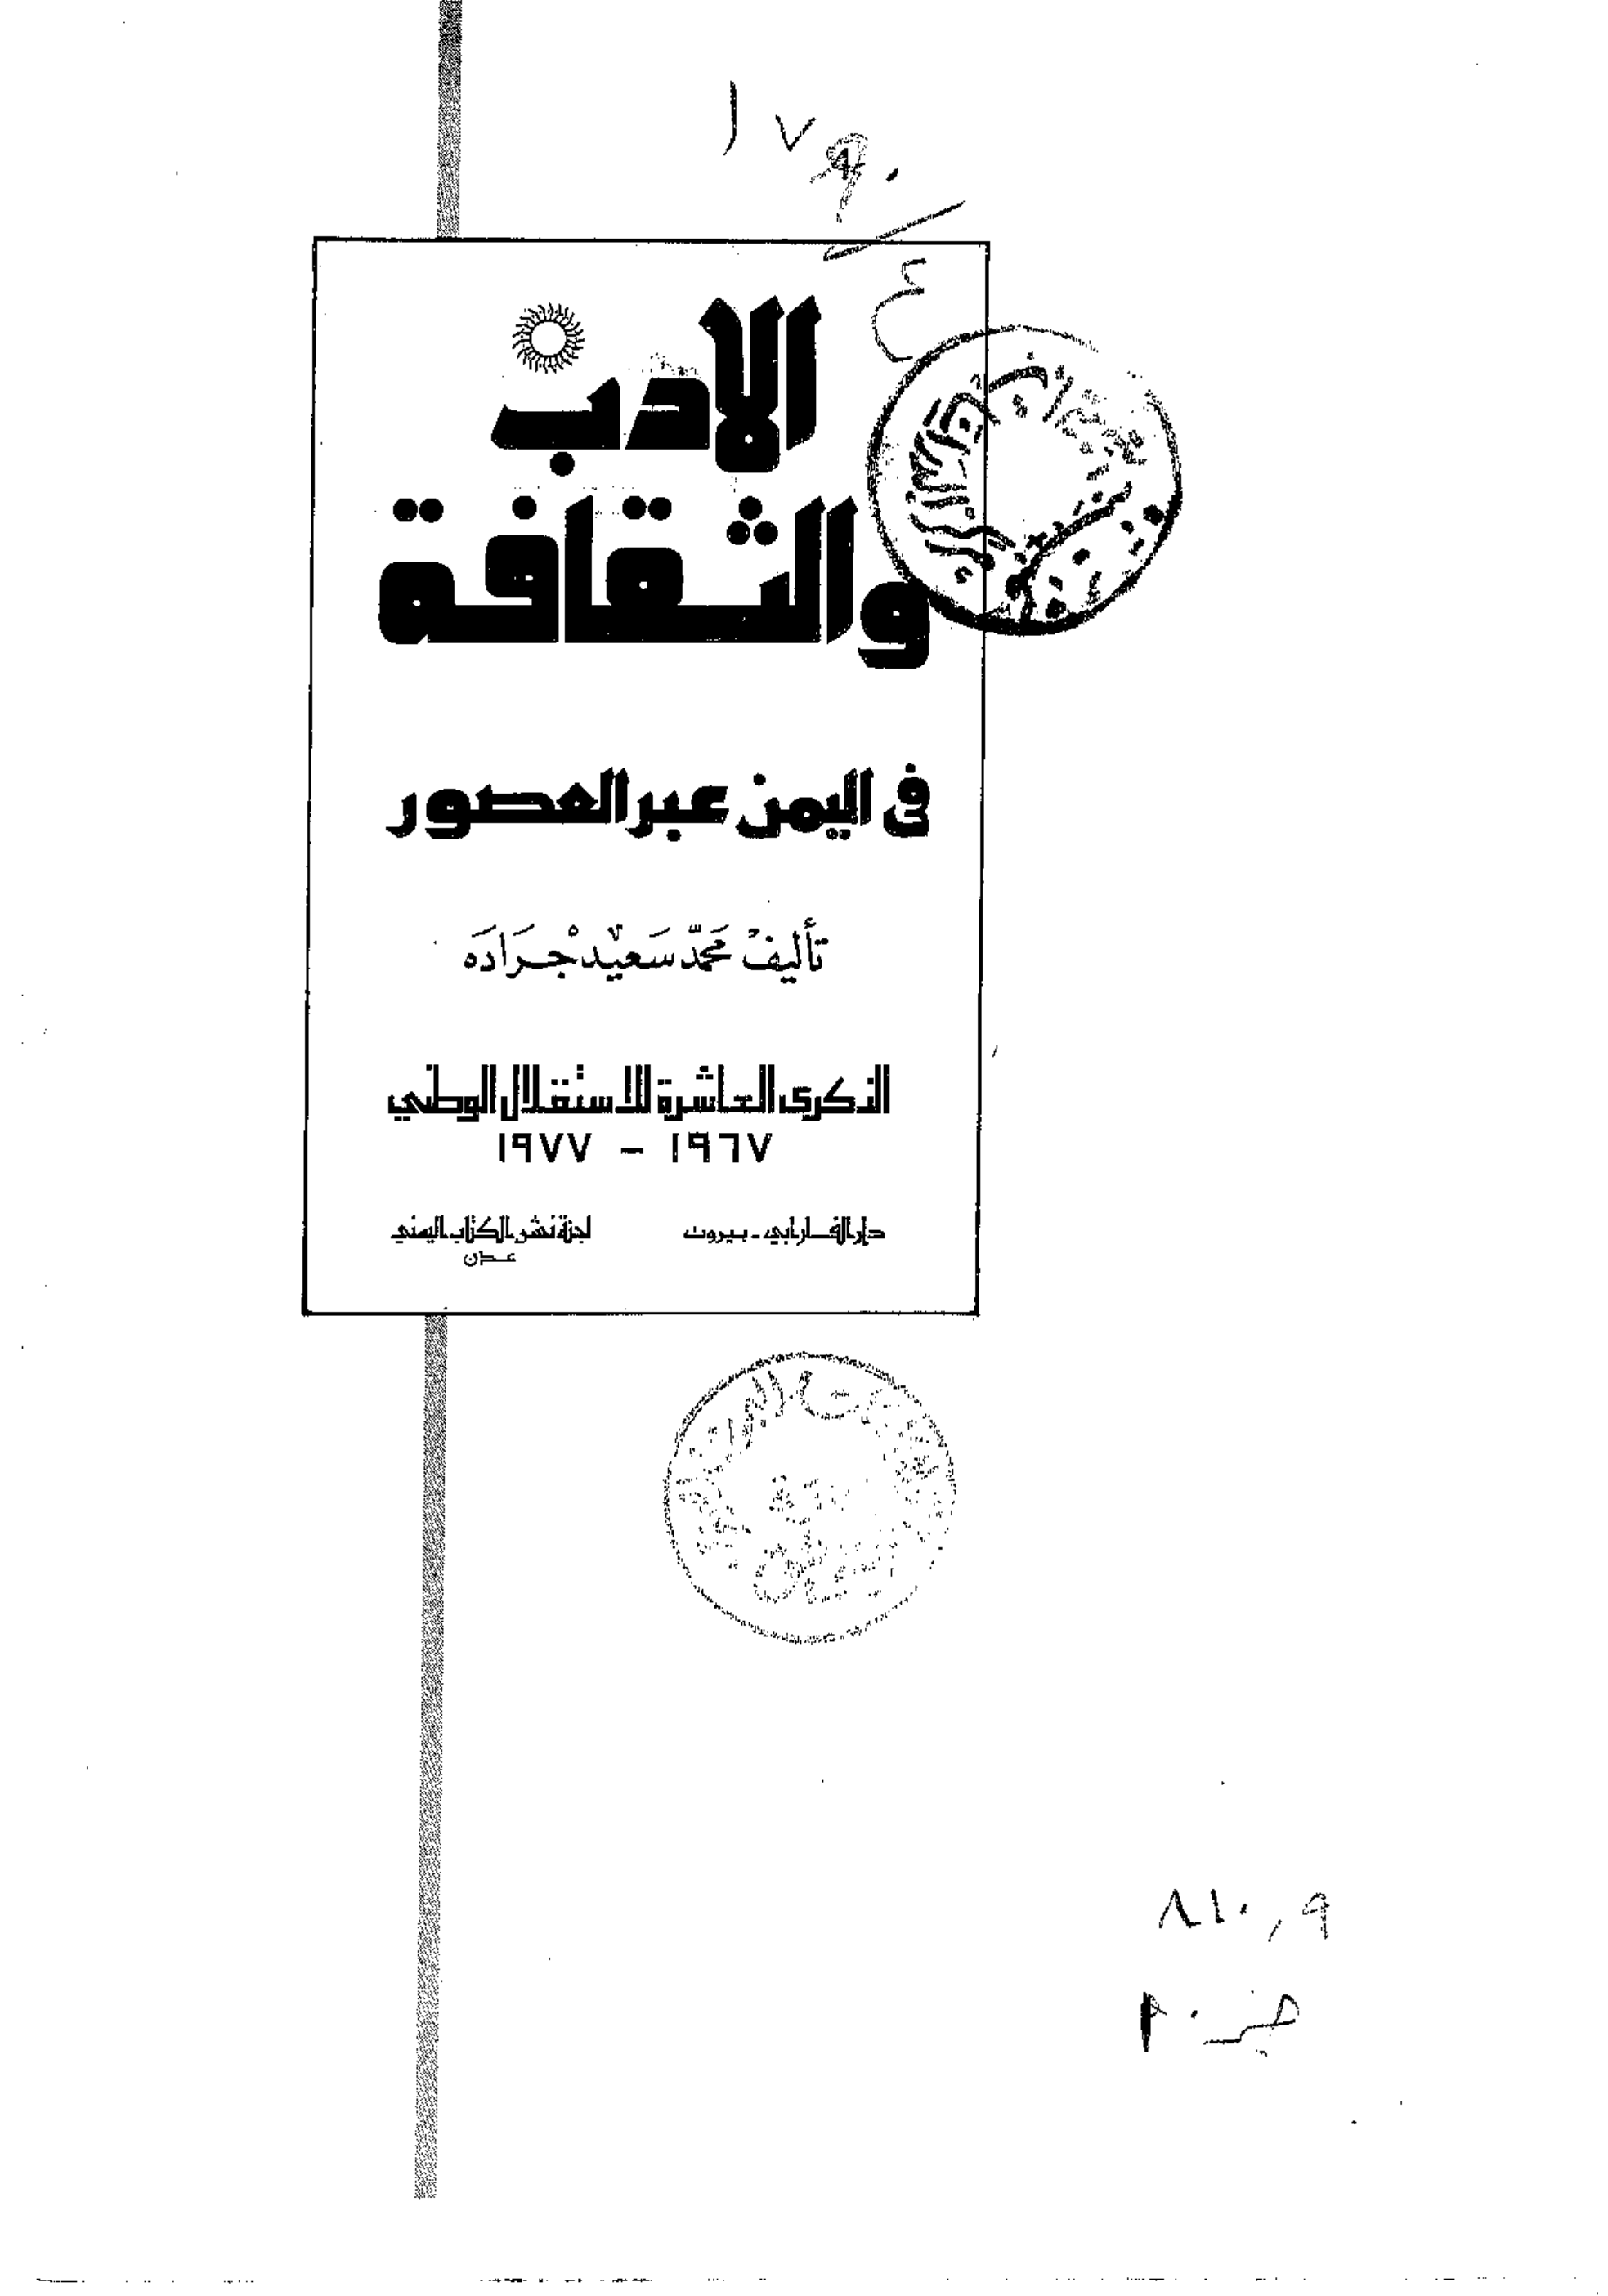 ١٧٩٠
٤
الادب
والثقافة
فى اليمن عبر العصور
تأليفْ محمّد سَعيْد جْرَادَه
الذكرى العاشرة للاستقلال الوطني
١٩٦٧ - ١٩٧٧
دار الفارابي - بيروت
لجنة نشر الكتاب اليمني
عدن
٨١٠,٩